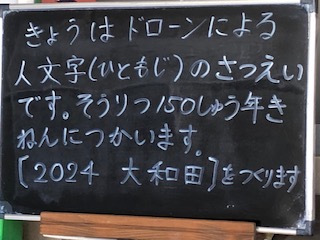 きょうはドローンによる
人文字(ひともじ)のさつえい
です。そうりつ150しゅう年き
ねんにつかいます。
[2024 大和田]をつくります